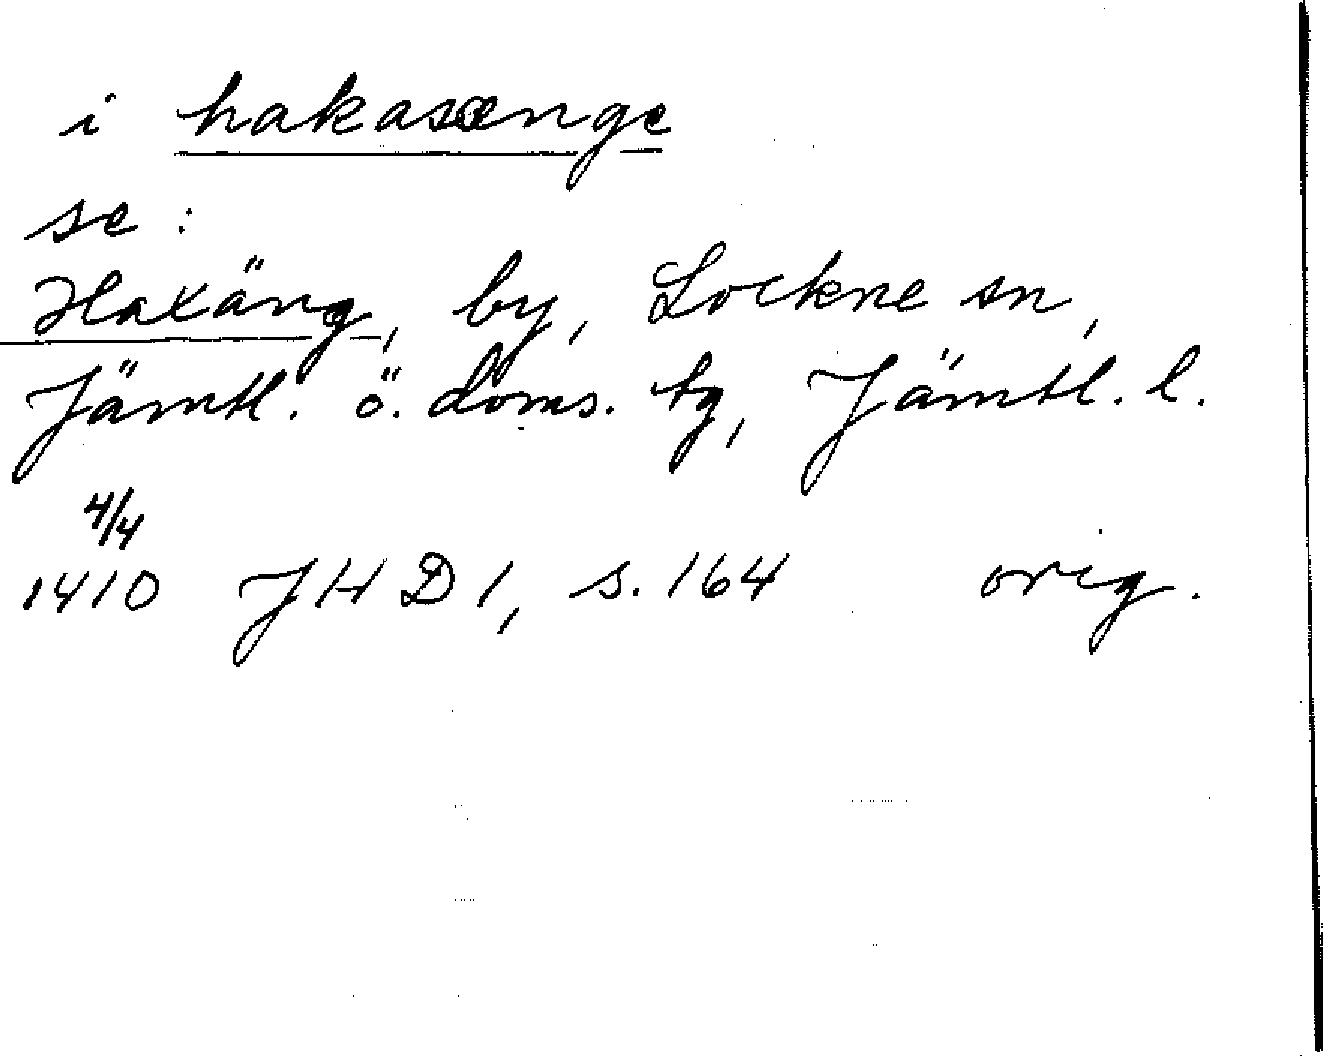 i hakasænge
se:
Haxäng, by, Lockne sn,
Jämtl. ö. doms. tg, Jämtl. l.
4/4
1410 JHD 1, s. 164 orig.